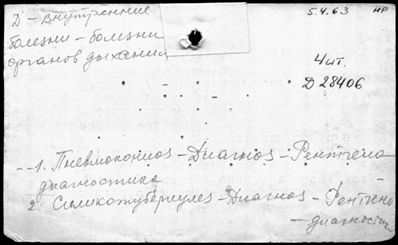 Д – внутренние
болезни – болезни
органов дыхения
5.4.63 НР
Чит.
Д 28406
1. Пневмокониоз – Диагноз – Рентгено
диагностика
2. Силикотуберкулез – Диагноз – Рентгено
– диагностика